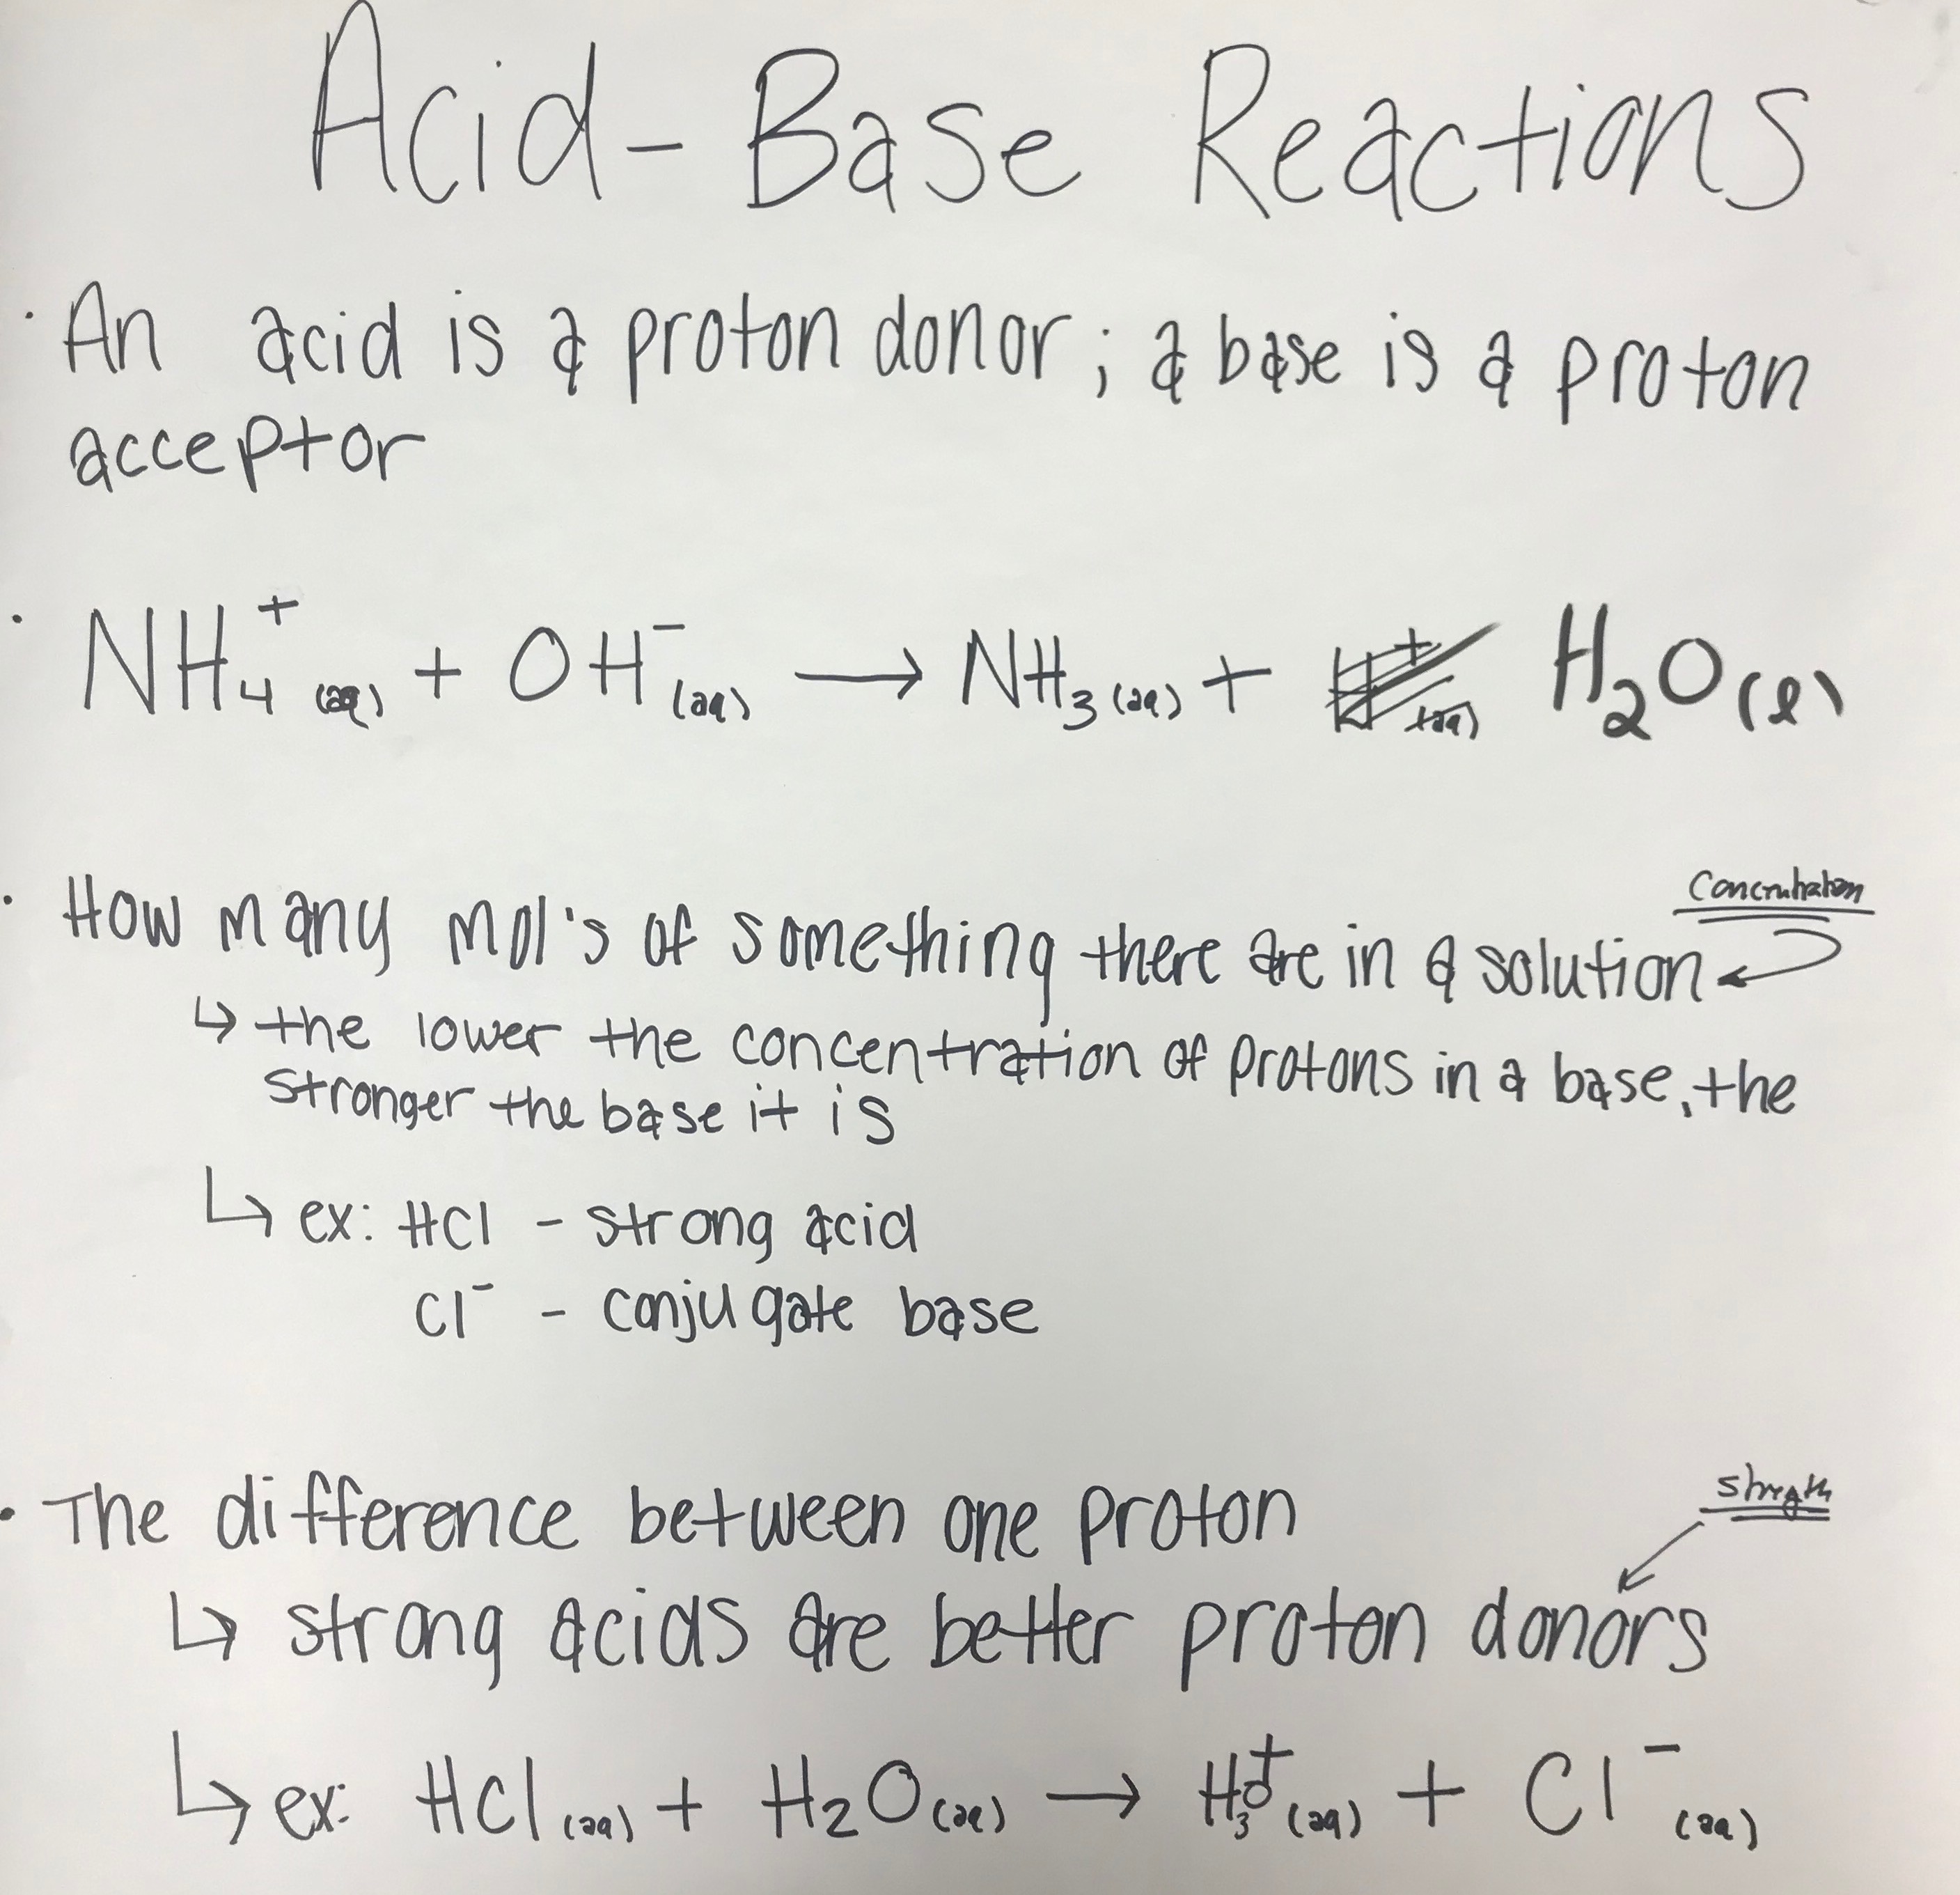 Acid-Base Reactions
· An acid is a proton donor; a base is a proton
acceptor
· NH₄⁺(aq) + OH⁻(aq) → NH₃(aq) + H₂O(l)
Concentration
· How many mol's of something there are in a solution
↳ the lower the concentration of protons in a base, the
stronger the base it is
↳ ex: HCl - strong acid
Cl⁻ - conjugate base
strength
· The difference between one proton
↳ strong acids are better proton donors
↳ ex: HCl(aq) + H₂O(aq) → H₃O⁺(aq) + Cl⁻(aq)